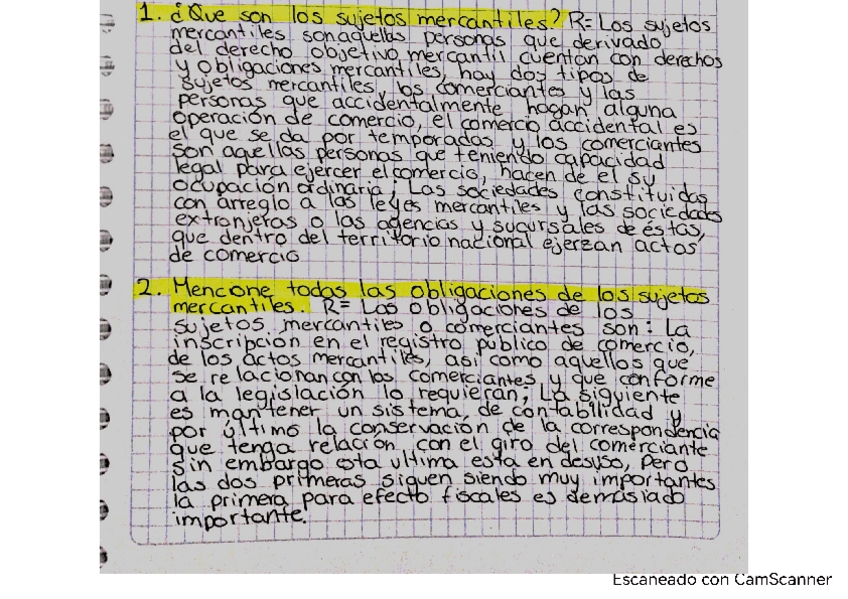 1. ¿Que son los sujetos mercantiles? R= Los sujetos
mercantiles son aquellas personas que derivado
del derecho objetivo mercantil cuentan con derechos
y obligaciones mercantiles, hay dos tipos de
sujetos mercantiles, los comerciantes y las
personas que accidentalmente hagan alguna
operación de comercio, el comercio accidental es
el que se da por temporadas y los comerciantes
son aquellas personas que teniendo capacidad
legal para ejercer el comercio, hacen de el su
ocupación ordinaria; Las sociedades constituidas
con arreglo a las leyes mercantiles y las sociedades
extranjeras o las agencias y sucursales de éstas,
que dentro del territorio nacional ejerzan actos
de comercio
2. Mencione todas las obligaciones de los sujetos
mercantiles. R= Las obligaciones de los
sujetos mercantiles o comerciantes son: La
inscripción en el registro público de comercio,
de los actos mercantiles, asi como aquellos que
se relacionan con los comerciantes y que conforme
a la legislación lo requieran; La siguiente
es mantener un sistema de contabilidad y
por último la conservación de la correspondencia
que tenga relación con el giro del comerciante
sin embargo esta ultima esta en desuso, pero
las dos primeras siguen siendo muy importantes
la primera para efecto fiscales es demasiado
importante.
Escaneado con CamScanner